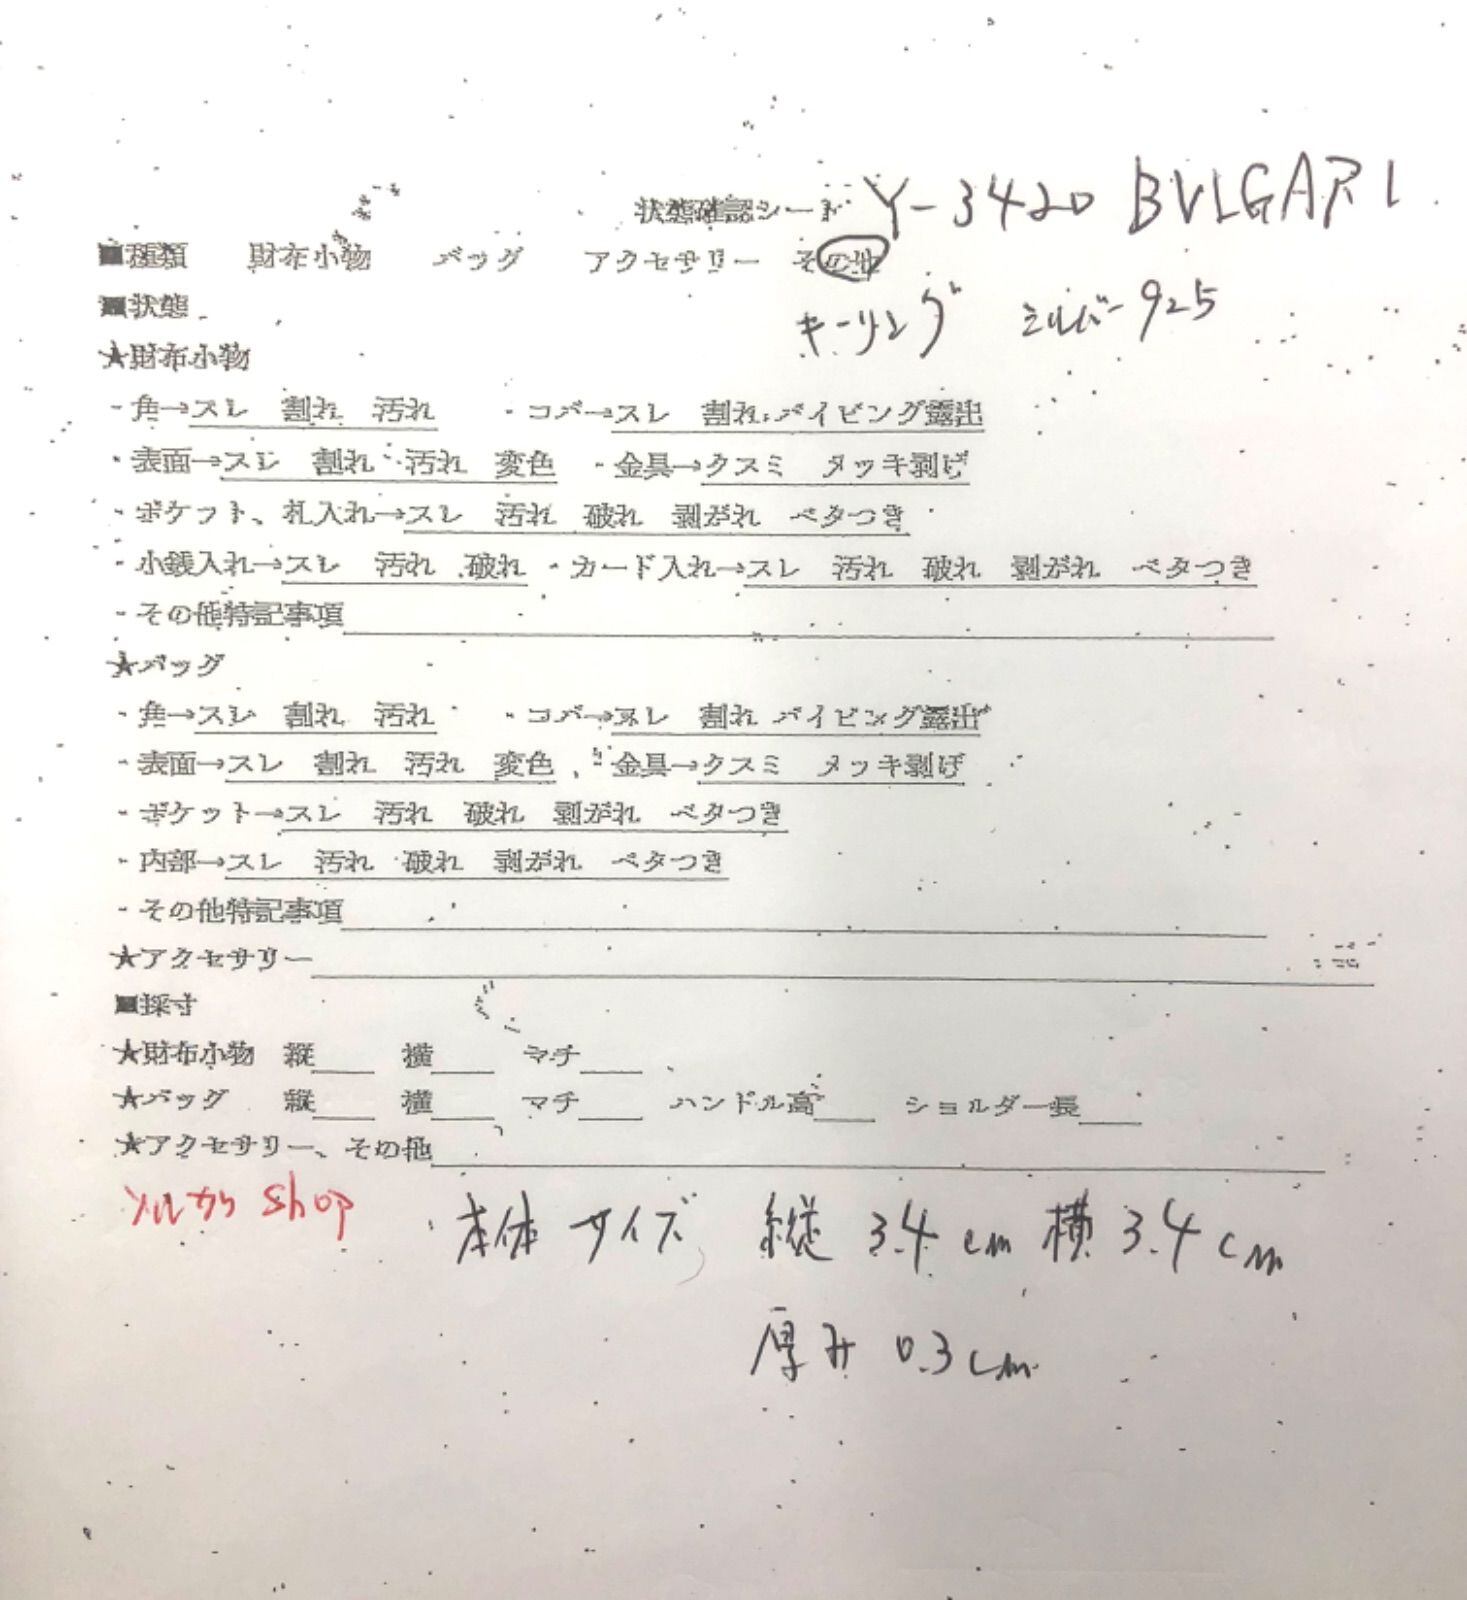 状態確認シート Y-3420 BVLGARI
■種類 財布小物 バッグ アクセサリー その他
■状態 キーリング シルバー925
★財布小物
・角→スレ 割れ 汚れ ・コバ→スレ 割れ パイピング露出
・表面→スレ 割れ 汚れ 変色 ・金具→クスミ メッキ剥げ
・ポケット、札入れ→スレ 汚れ 破れ 剥がれ ベタつき
・小銭入れ→スレ 汚れ 破れ ・カード入れ→スレ 汚れ 破れ 剥がれ ベタつき
・その他特記事項
★バッグ
・角→スレ 割れ 汚れ ・コバ→スレ 割れ パイピング露出
・表面→スレ 割れ 汚れ 変色 ・金具→クスミ メッキ剥げ
・ポケット→スレ 汚れ 破れ 剥がれ ベタつき
・内部→スレ 汚れ 破れ 剥がれ ベタつき
・その他特記事項
★アクセサリー
■採寸
★財布小物 縦 横 マチ
★バッグ 縦 横 マチ ハンドル高 ショルダー長
★アクセサリー、その他
shop 本体サイズ 縦 3.4cm 横 3.4cm
厚み 0.3cm